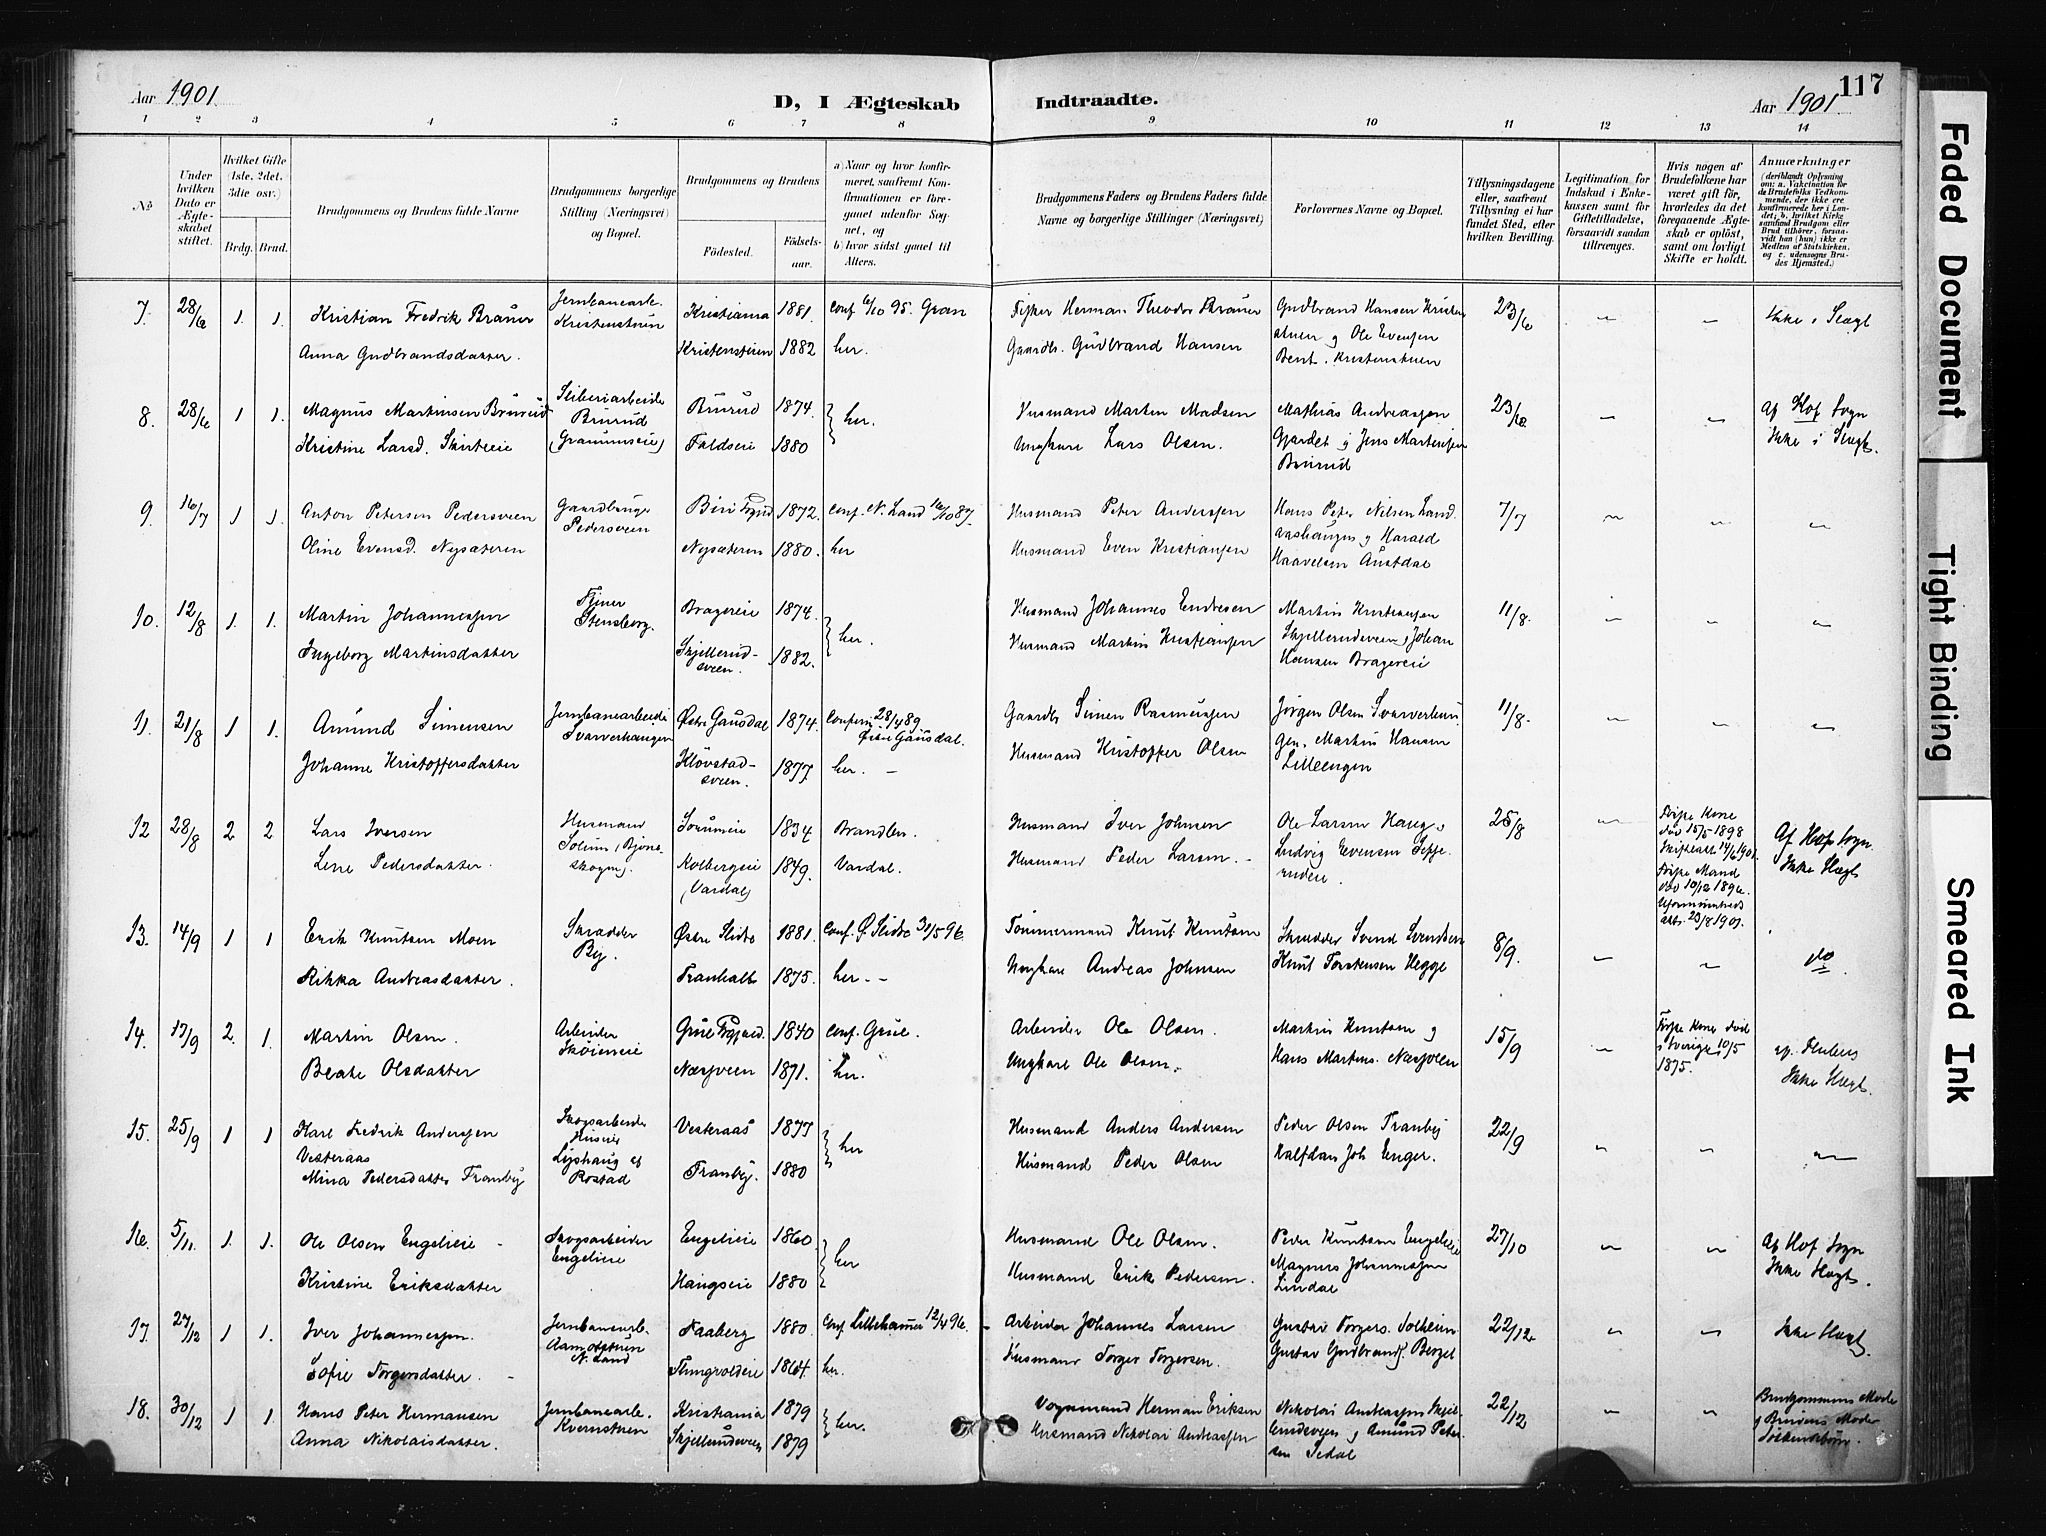 117
Aar 1901.
D, I Ægteskab
Indtraadte.
Aar 1901.
1 2 3 4 5 6 7 8 9 10 11 12 13 14
No
Under hvilken Dato er Ægteskabet stiftet.
Hvilket Gifte (1ste, 2det, 3die osv.)
Brdg. Brud.
Brudgommens og Brudens fulde Navne
Brudgommens borgerlige Stilling (Næringsvei) og Bopæl.
Brudgommens og Brudens
Födested.
Födsels-aar.
a) Naar og hvor konfirmeret, saafremt Konfirmationen er foregaaet udenfor Sognet, og
b) hvor sidst gaaet til Alters.
Brudgommens Faders og Brudens Faders fulde Navne og borgerlige Stillinger (Næringsvei)
Forlovernes Navne og Bopæl.
Tillysningsdagene eller, saafremt Tillysning ei har fundet Sted, efter hvilken Bevilling.
Legitimation for Indskud i Enkekassen samt for Giftetilladelse, forsaavidt saadan tiltrænges.
Hvis nogen af Brudefolkene har været gift för, hvorledes da det foregaaende Ægteskab er oplöst, samt om lovligt Skifte er holdt.
Anmærkninger (deriblandt Oplysning om: a. Vakcination for de Brudefolks Vedkommende, der ikke ere konfirmerede her i Landet; b. hvilket Kirkesamfund Brudgom eller Brud tilhörer, forsaavidt han (hun) ikke er Medlem af Statskirken, og c. udensogns Brudes Hjemsted.)
7. 28/6 1. 1. Kristian Fredrik Bråuer Jernbanearb. Kristenstuen Kristiania 1881. conf 6/10 95. Gran Herman Theodor Bråuer Gudbrand Hansen Kristenstuen og Ole Evensen 23/6 Ikke i Slægt
Anna Gudbrandsdatter. Kristenstuen 1882 her. Gaardbr. Gudbrand Hansen Kristenstuen
8. 28/6 1 1. Magnus Martinsen Brurud Brurud 1874. her. Husmand Martin Madsen Mathias Andreassen Gjørdet og Jens Martinsen Brurud 23/6 Af Hof Sogn Ikke i Slægt.
Kristine Larsd. Faldseie 1880 Ungkare Lars Olsen.
9. 16/7 1 1. Anton Petersen Pedersveen Gaardbruger Pedersveen Biri 1872. conf. N. Land 16/10 87. Husmand Peter Anderssen Hans Peter Nilsen Landaashaugen og Harald Haavelsen Austdal 7/7
Oline Evensd. Nysæteren Nysæteren 1880. her Husmand Even Kristiansen
10. 12/8 1. 1. Martin Johannessen Stensberg. Bragereie 1874. her. Husmand Johannes Endresen Martin Kristiansen Skjellerudsveen og Johan Hansen Bragereie 11/8.
Ingeborg Martinsdatter Skjellerudsveen. 1882. Husmand Martin Kristiansen
11. 21/8 1 1. Amund Simensen Jernbanearbeider Svarverhaugen Østre Gausdal 1874. Confirm. 28/4 89 Østre Gausdal. Gaardb. Simen Rasmussen Jörgen Olsen Svarverhaugen. Martin Hansen Lilleengen 11/8.
Johanne Kristoffersdatter Kløvstadsveen. 1877. her. Husmand Kristoffer Olsen
12 28/8 2 2 Lars Iversen Husmand 1834 Brandbu. Husmand Iver Johnsen Ole Larsen Haug, Ludvig Evensen 25/8 Kone død 15/5 1898 Af Hof Sogn. Ikke Slægt
Lene Pedersdatter. Kolbergseie (Vardal) 1849. Vardal. Husmand Peder Larsen. Mand død 10/12 1896. 23/8 1901.
13. 14/9 1 1 Erik Knutsen Moen Skrædder By. Østre Slidre 1881. Conf. Ø. Slidre 31/5 96. Tømmermand Knut Knutsen Skrædder Svend Svendsen Knut Torstensen Hegge 8/9. do
Rikka Andreasdatter. 1875. her. Ungkare Andreas Johnsen
14. 17/9 2. 1. Martin Olsen. Arbeider Grue 1840 Conf. Grue. Arbeider Ole Olsen. Martin Knutsen og Hans Martins. Næssveen 15/9 Kone død i Sverige 10/5 1875. Ikke Slægt.
Beate Olsdatter Næssveen 1871. her. Ungkare Ole Olsen.
15. 25/9 1 1 Karl Fredrik Anderssen Vesteraas Skogsarbeider Rostad Vesteraas 1877 her Husmand Anders Andersen Peder Olsen Tranby Halfdan Joh Enger. 22/9
Mina Pedersdatter Tranby Tranby. 1880 Husmand Peder Olsen
16. 5/11. 1. 1. Ole Olsen Engelieie Skogsarbeider Engelieie Engelieie 1860 her Husmand Ole Olsen. Peder Knutsen Engelieie Magnus Johannessen Lindal 27/10 Af Hof Sogn Ikke Slægt.
Kristine Eriksdatter Haugseie 1880 Husmand Erik Pedersen.
17. 27/12 1 1. Iver Johannessen. Jernbanearb. N. Land Faaberg 1880. Conf. Lillehamer 12/4 96. Arbeider Johannes Larsen Gustav Torgers. Solheim Gustav Gudbrands. 22/12 Ikke Slægt.
Sofie Torgersdatter. 1864. her. Husmand Torger Torgersen.
18. 30/12 1 1. Hans Peter Hermansen Jernbanearb. Kvernstuen Kristiania 1879 her. Vognmand Herman Eriksen Nikolai Andreassen Skjellerudsveen og Amund Petersen Sedal 22/12 Brudgommens Moder og Brudens Moder Søskendebørn.
Anna Nikolaisdatter. Skjellerudsveen 1879 Husmand Nikolai Andreassen
Faded Document
Tight Binding
Smeared Ink